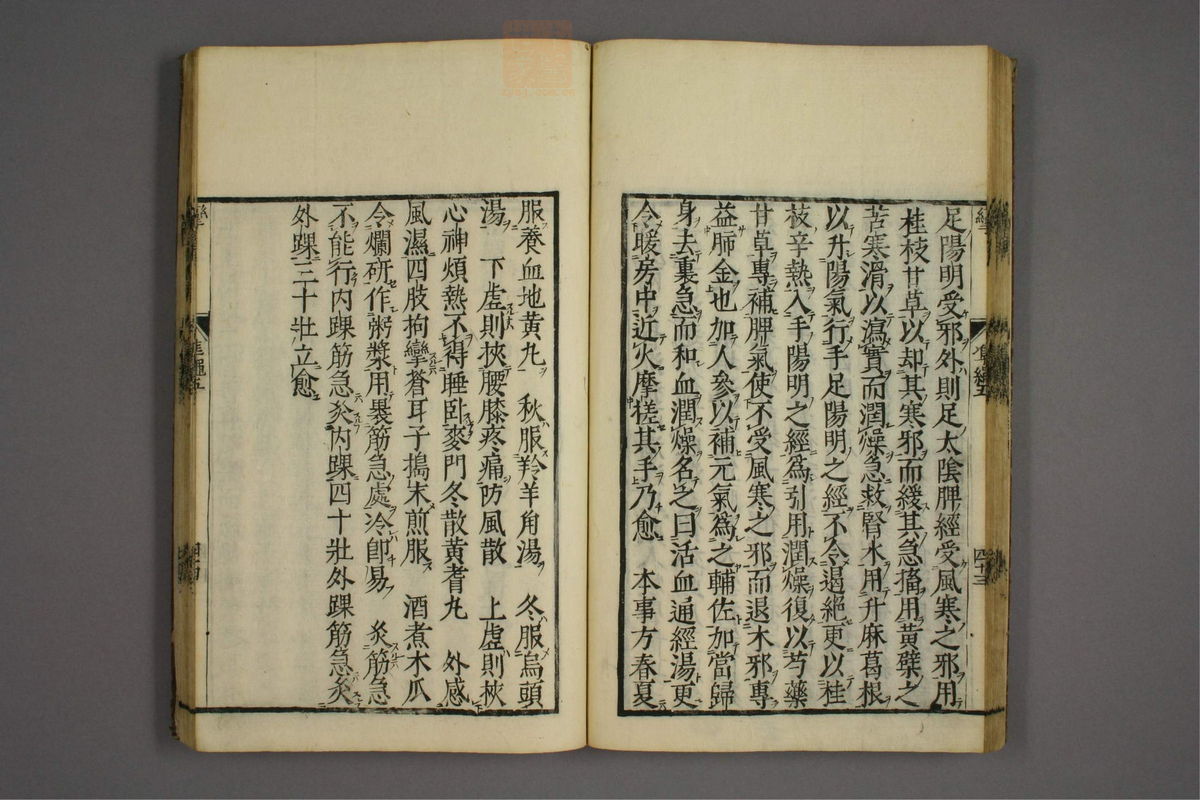 足陽明受邪外則足太陰脾經受風寒之邪用
桂枝甘草以却其寒邪而緩其急搐用黃檗之
苦寒滑以瀉實而潤燥急救腎水用升麻葛根
以升陽氣行手足陽明之經不令遏絕更以桂
枝辛熱入手陽明之經爲引用潤燥復以芍藥
甘草專補脾氣使不受風寒之邪而退木邪專
益肺金也加人參以補元氣爲之輔佐加當歸
身去裏急而和血潤燥名之曰活血通經湯更
令暖房中近火摩搓其手乃愈　本事方春夏
服養血地黃丸　秋服羚羊角湯　冬服烏頭
湯　下虛則挾腰膝疼痛防風散　上虛則挾
心神煩熱不得睡卧麥門冬散黃耆丸　外感
風濕四肢拘攣蒼耳子搗末煎服　酒煮木瓜
令爛研作粥漿用裹筋急處冷即易　灸筋急
不能行内踝筋急灸内踝四十壯外踝筋急灸
外踝三十壯立愈